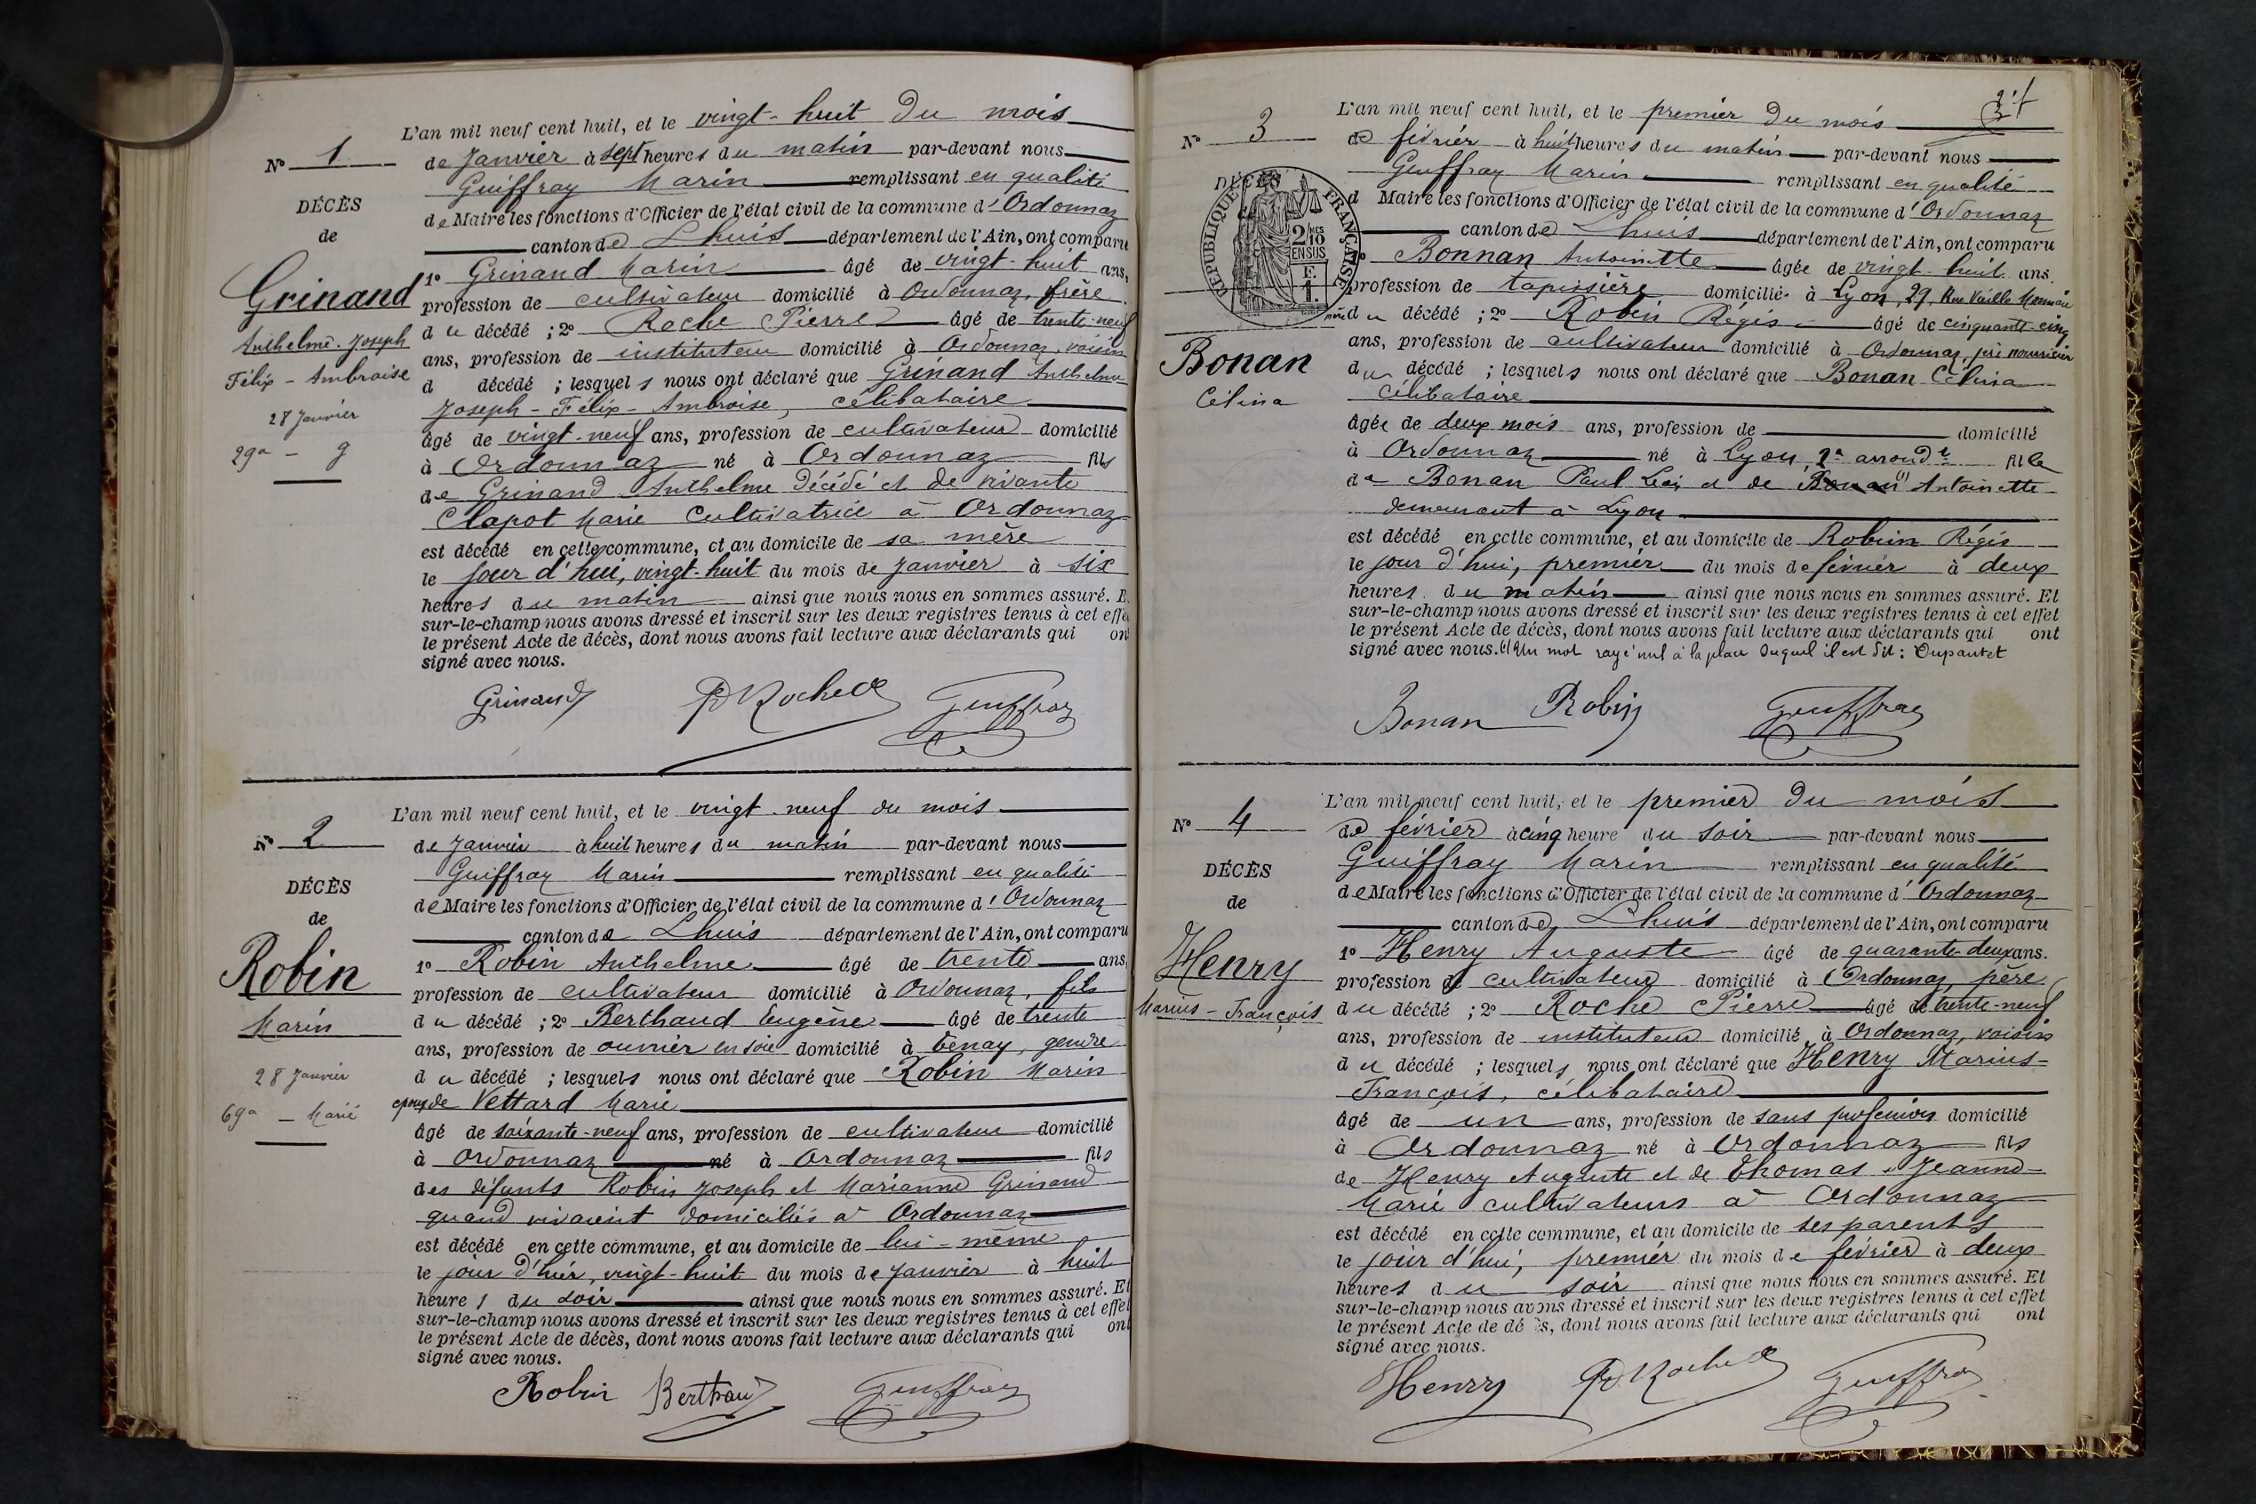 L'an mil neuf cent huit, et le vingt-huit du mois
N° 1
de Janvier à sept heures du matin par-devant nous
Guiffray Marin remplissant en qualité
DÉCÈS
de Maire les fonctions d'Officier de l'état civil de la commune d'Ordonnaz
de
canton de Lhuis département de l'Ain, ont comparu
Grinand
1° Grinand Marin âgé de vingt-huit ans,
profession de cultivateur domicilié à Ordonnaz, frère
Anthelme-Joseph
du décédé ; 2° Roche Pierre âgé de trente-neuf
ans, profession de instituteur domicilié à Ordonnaz, voisin
Félix-Ambroise
d décédé ; lesquels nous ont déclaré que Grinand Anthelme
28 Janvier
Joseph-Félix-Ambroise, célibataire
âgé de vingt-neuf ans, profession de cultivateur domicilié
29a - g
à Ordonnaz né à Ordonnaz fils
de Grinand Anthelme décédé et de vivante
Clapot Marie Cultivatrice à Ordonnaz
est décédé en cette commune, et au domicile de sa mère
le jour d'hui, vingt-huit du mois de Janvier à six
heures du matin ainsi que nous nous en sommes assuré. E
sur-le-champ nous avons dressé et inscrit sur les deux registres tenus à cet effe
le présent Acte de décès, dont nous avons fait lecture aux déclarants qui ont
signé avec nous.
Grinand P Roche Guiffray
L'an mil neuf cent huit, et le vingt-neuf du mois
N° 2
de Janvier à huit heures du matin par-devant nous
Guiffray Marin remplissant en qualité
DÉCÈS
de Maire les fonctions d'Officier de l'état civil de la commune d'Ordonnaz
de
canton de Lhuis département de l'Ain, ont comparu
Robin
1° Robin Anthelme âgé de trente ans,
profession de cultivateur domicilié à Ordonnaz, fils
Marin
du décédé ; 2° Berthaud Eugène âgé de trente
ans, profession de ouvrier en soie domicilié à Tenay, gendre
28 Janvier
du décédé ; lesquels nous ont déclaré que Robin Marin
69a - Marié
époux de Vettard Marie
âgé de soixante-neuf ans, profession de cultivateur domicilié
à Ordonnaz né à Ordonnaz fils
des défunts Robin Joseph et Marianne Grinand
quand vivaient domiciliés à Ordonnaz
est décédé en cette commune, et au domicile de lui-même
le jour d'hier, vingt-huit du mois de Janvier à huit
heures du soir ainsi que nous nous en sommes assuré. Et
sur-le-champ nous avons dressé et inscrit sur les deux registres tenus à cet effet
le présent Acte de décès, dont nous avons fait lecture aux déclarants qui ont
signé avec nous.
Robin Berthaud Guiffray
L'an mil neuf cent huit, et le premier du mois
N° 3
de février à huit heures du matin par-devant nous
Guiffray Marin remplissant en qualité
DÉCÈS
RÉPUBLIQUE FRANÇAISE
2 MES 10 EN SUS
d Maire les fonctions d'Officier de l'état civil de la commune d'Ordonnaz
canton de Lhuis département de l'Ain, ont comparu
Bonnan Antoinette âgée de vingt-huit ans
profession de tapissière domicilié à Lyon, 29, Rue Vieille Monnaie
mère du décédé ; 2° Robin Régis âgé de cinquante-cinq
Bonan
ans, profession de cultivateur domicilié à Ordonnaz, père nourricier
du décédé ; lesquels nous ont déclaré que Bonan Célina
Célina
célibataire
âgée de deux mois ans, profession de domicilié
à Ordonnaz né à Lyon, 1r arrondt fille
de Bonan Paul Léon et de Bonan (1) Antoinette
demeurant à Lyon
est décédé en cette commune, et au domicile de Robin Régis
le jour d'hui, premier du mois de février à deux
heures du matin ainsi que nous nous en sommes assuré. Et
sur-le-champ nous avons dressé et inscrit sur les deux registres tenus à cet effet
le présent Acte de décès, dont nous avons fait lecture aux déclarants qui ont
signé avec nous. (1) Un mot rayé nul à la place duquel il est dit : Dupautet
Bonan Robin Guiffray
L'an mil neuf cent huit, et le premier du mois
N° 4
de février à cinq heure du soir par-devant nous
Guiffray Marin remplissant en qualité
DÉCÈS
de Maire les fonctions d'Officier de l'état civil de la commune d'Ordonnaz
de
canton de Lhuis département de l'Ain, ont comparu
Henry
1° Henry Auguste âgé de quarante-deux ans.
profession de cultivateur domicilié à Ordonnaz, père
Marius-François
du décédé ; 2° Roche Pierre âgé de trente-neuf
ans, profession de instituteur domicilié à Ordonnaz, voisin
du décédé ; lesquels nous ont déclaré que Henry Marius-
François, célibataire
âgé de un ans, profession de sans profession domicilié
à Ordonnaz né à Ordonnaz fils
de Henry Auguste et de Thomas Jeanne-
Marie cultivateurs à Ordonnaz
est décédé en cette commune, et au domicile de ses parents
le jour d'hui, premier du mois de février à deux
heures du soir ainsi que nous nous en sommes assuré. Et
sur-le-champ nous avons dressé et inscrit sur les deux registres tenus à cet effet
le présent Acte de dé ès, dont nous avons fait lecture aux déclarants qui ont
signé avec nous.
Henry P Roche Guiffray